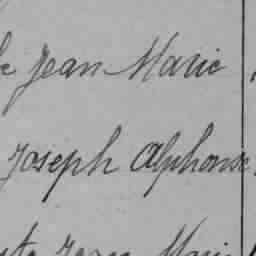 Jean Marie
Joseph Alphonse
Jean Marie